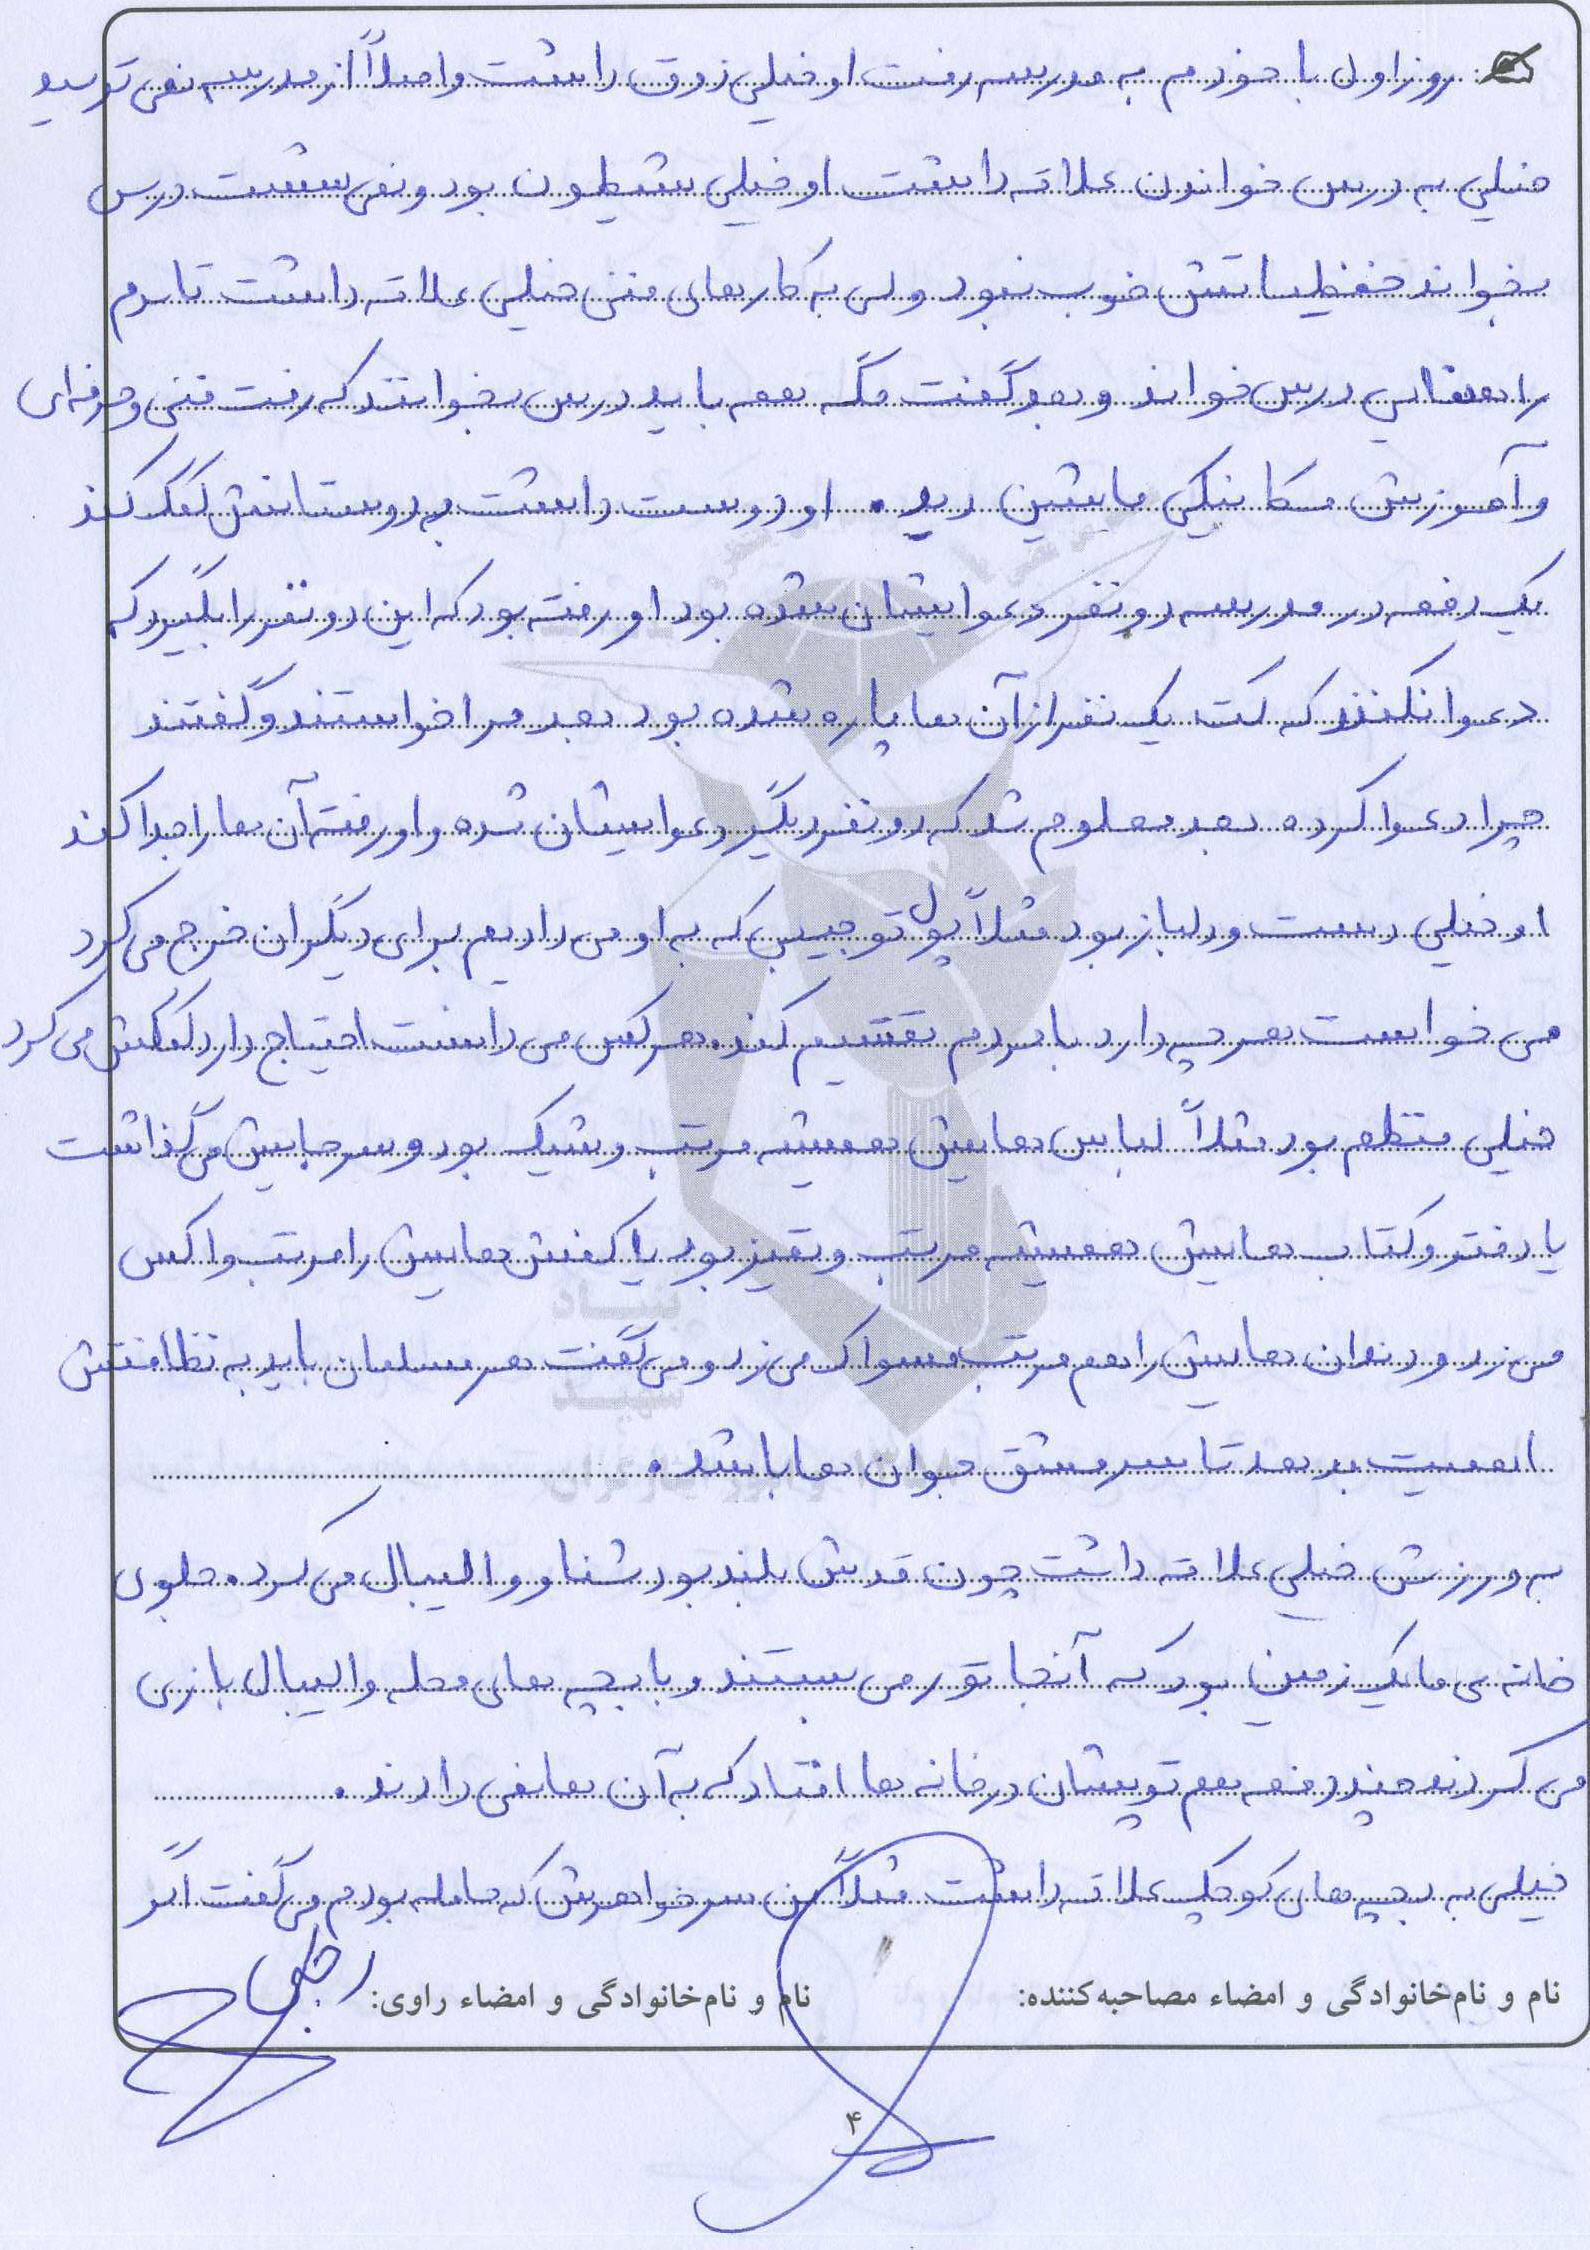 روز اول با خودم به مدرسه رفت او خیلی ذوق داشت و اصلاً از مدرسه نمی ترسید
خیلی به درس خواندن علاقه داشت او خیلی شیطون بود و نمی نشست درس
بخواند حفظیاتش خوب نبود ولی به کارهای فنی خیلی علاقه داشت تا سوم
راهنمایی درس خواند و بعد گفت مگه همه باید درس بخوانند که رفت فنی و حرفه ای
و آموزش مکانیکی ماشین دید. او دوست داشت به دوستانش کمک کند
یک دفعه در مدرسه دو نفر دعوایشان شده بود او رفته بود که این دو نفر را بگیرد که
دعوا نکنند که کت یک نفر از آن ها پاره شده بود بعد مرا خواستند و گفتند
چرا دعوا کرده بعد معلوم شد که دو نفر دیگر دعوایشان شده و او رفته آن ها را جدا کند
او خیلی دست و دلباز بود مثلاً پول تو جیبی که به او می دادیم برای دیگران خرج می کرد
می خواست هر چه دارد با مردم تقسیم کند. هر کس می دانست احتیاج دارد کمکش می کرد
خیلی منظم بود مثلاً لباس هایش همیشه مرتب و شیک بود و سر جایش می گذاشت
یا دفتر و کتاب هایش همیشه مرتب و تمیز بود یا کفش هایش را مرتب واکس
می زد و دندان هایش را هم مرتب مسواک می زد و می گفت هر مسلمان باید به نظافتش
اهمیت بدهد تا سرمشق جوان ها باشد.
به ورزش خیلی علاقه داشت چون قدش بلند بود شنا و والیبال می کرد. جلوی
خانه ی ما یک زمین بود که آنجا تور می بستند و با بچه های محله والیبال بازی
می کردند چند دفعه هم توپشان در خانه ها افتاد که به آن ها نمی دادند.
خیلی به بچه های کوچک علاقه داشت مثلاً من سر خواهرش که حامله بودم می گفت اگر
نام و نام‌خانوادگی و امضاء مصاحبه‌کننده: نام و نام‌خانوادگی و امضاء راوی:
۴
بنیاد
شهید